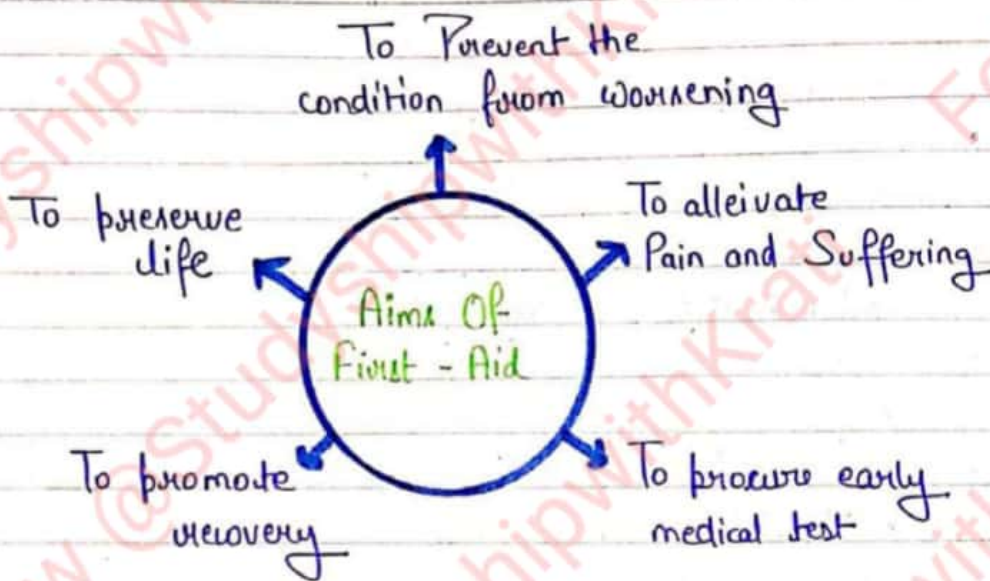 To Prevent the
condition from worsening
To preserve
life
To alleivate
Pain and Suffering
Aims Of
First - Aid
To promote
recovery
To procure early
medical test
@StudyshipwithKrati